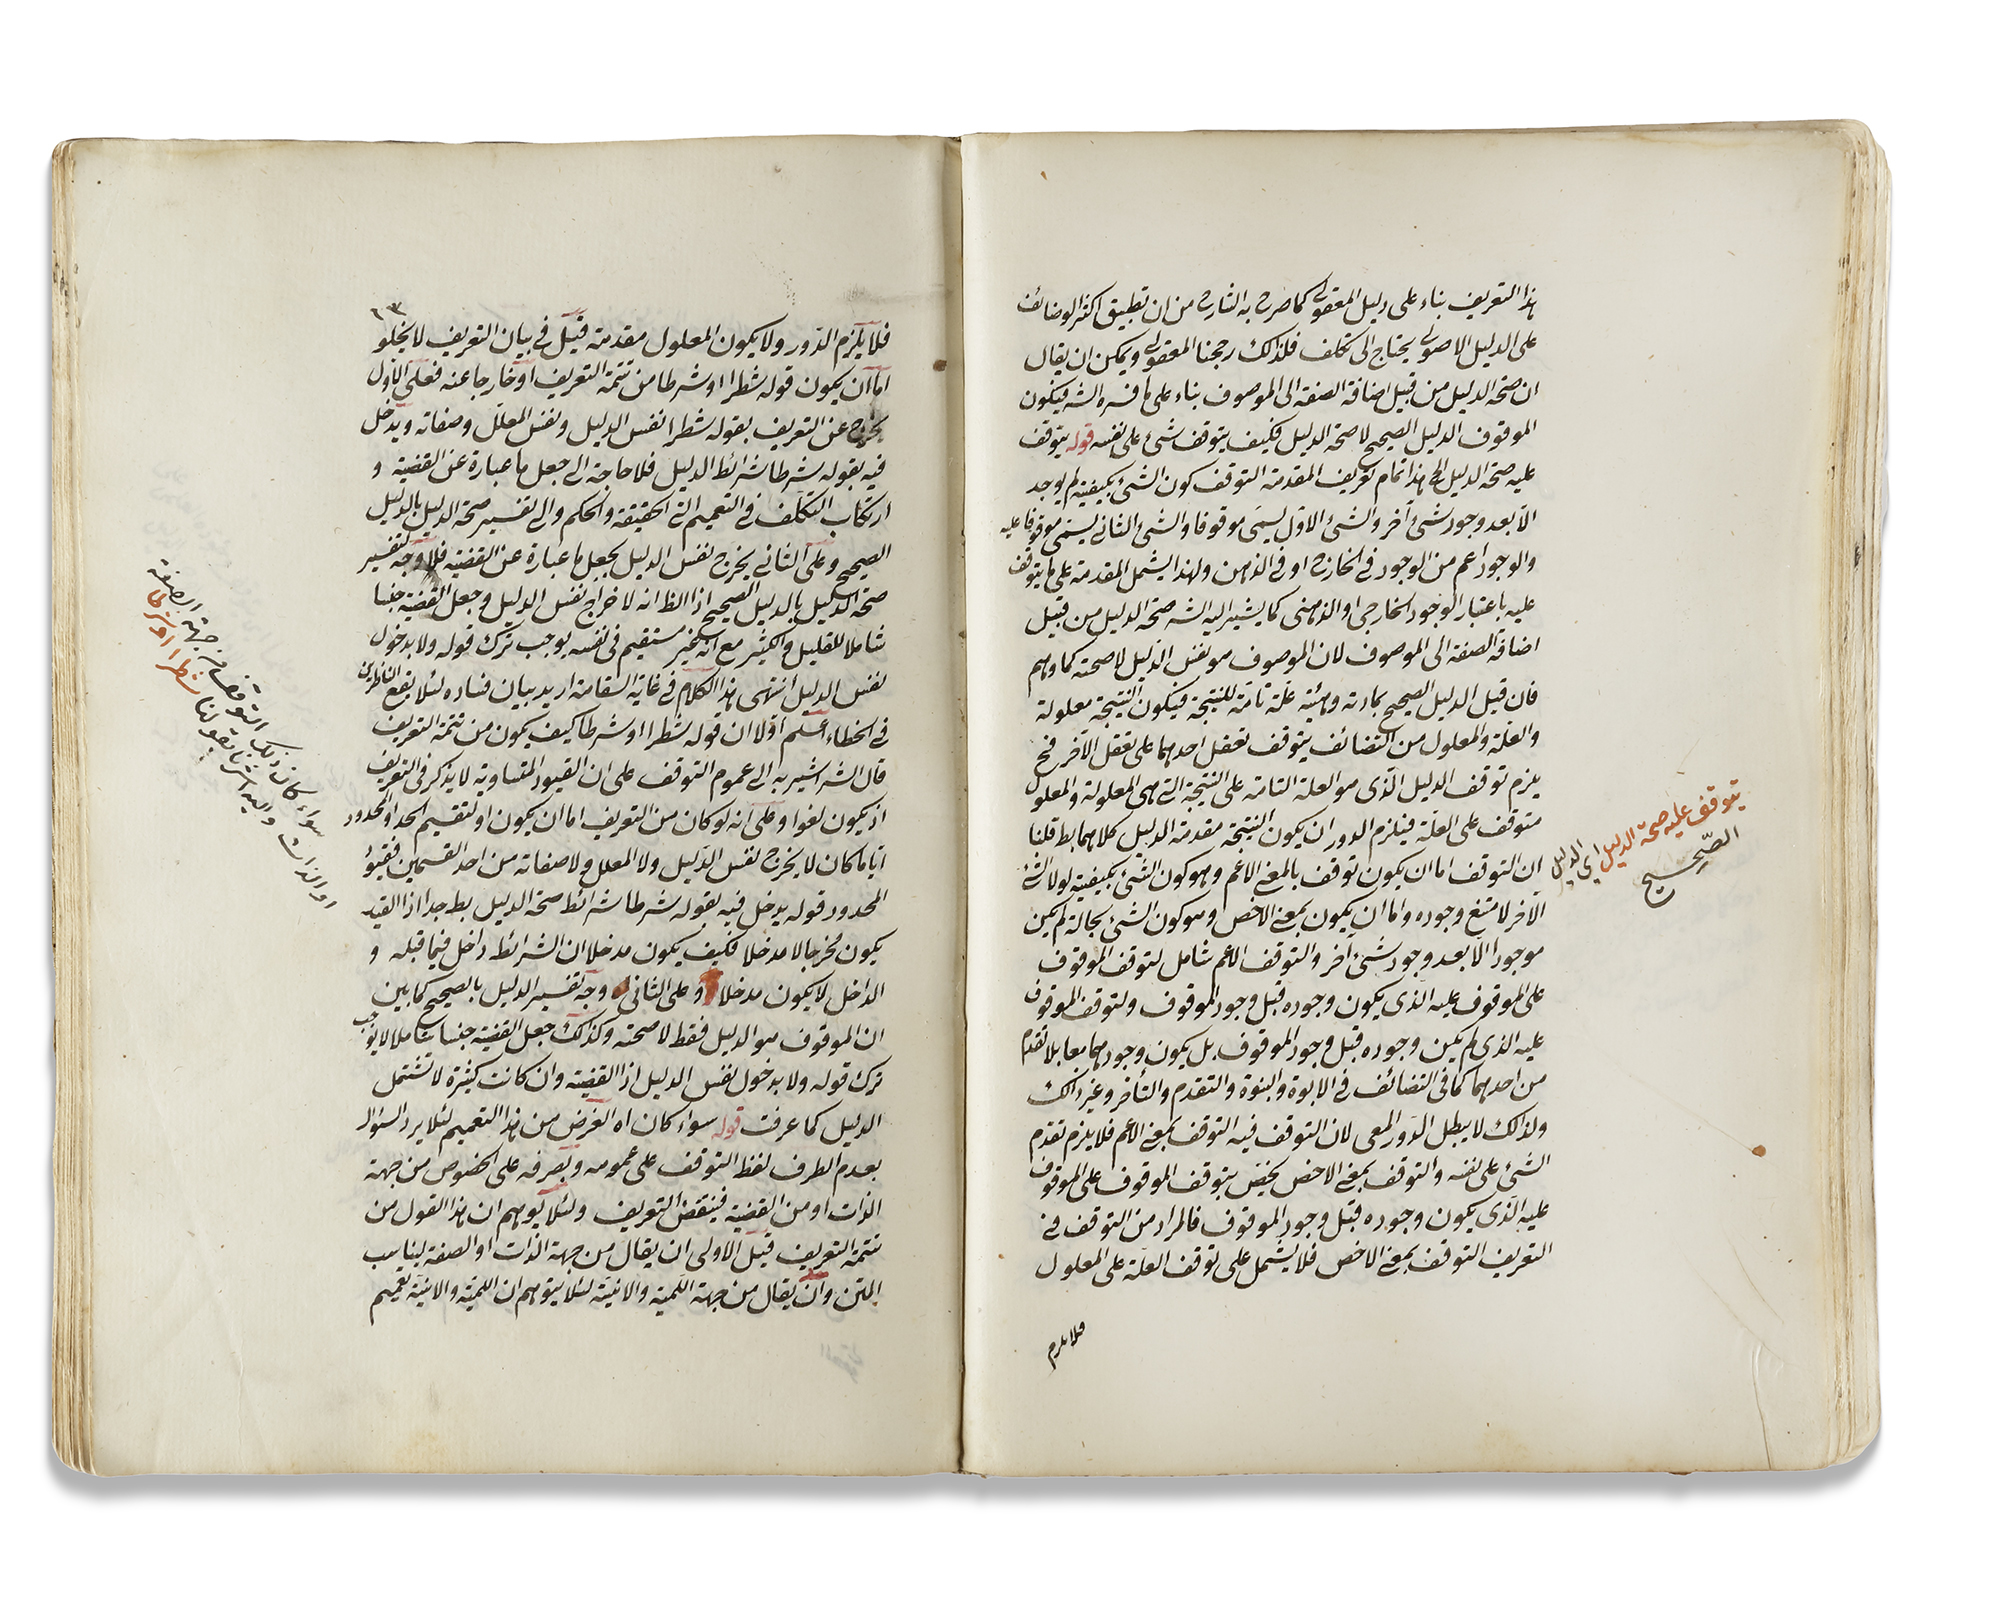 هذا التعريف بناء على دليل المعقول كما صرح به الشارح من ان تطبيق اكثر الوضائف
على الدليل الاصولى يحتاج الى تكلف فلذالك رجحنا المعقولى ويمكن ان يقال
ان صحة الدليل من قبيل اضافة الصفة الى الموصوف بناء على ما فسره الشه فيكون
الموقوف الدليل الصحيح لا صحة الدليل فكيف يتوقف شئ على نفسه قوله يتوقف
عليه صحة الدليل الخ هذا تمام تعريف المقدمة التوقف كون الشئ بكيفية لم يوجد
الا بعد وجود شئ آخر والشئ الاول يسمى موقوفا والشئ الثانى يسمى موقوفا عليه
والوجود اعم من الوجود فى الخارج او فى الذهن ولهذا يشمل المقدمة على ما يتوقف
عليه باعتبار الوجود الخارجى او الذهنى كما يشير اليه الشه صحة الدليل من قبيل
اضافة الصفة الى الموصوف لان الموصوف هو نفس الدليل لا صحته كما وهم
فان قيل الدليل الصحيح بمادته وهيئته علة تامة للنتيجة فيكون النتيجة معلولة
والعلة والمعلول من التضائف يتوقف تعقل احدهما على تعقل الآخر فح
يلزم توقف الدليل الذى هو العلة التامة على النتيجة التى هى المعلولة والمعلول
متوقف على العلة فيلزم الدور ان يكون النتيجة مقدمة الدليل كلاهما بط قلنا
ان التوقف اما ان يكون توقف بالمعنى الاعم وهو كون الشئ بكيفية لولا الشئ
الآخر لامتنع وجوده واما ان يكون بمعنى الاخص وهو كون الشئ بحالة لم يكن
موجودا الا بعد وجود شئ آخر والتوقف الاعم شامل لتوقف الموقوف
على الموقوف عليه الذى يكون وجوده قبل وجود الموقوف ولتوقف الموقوف
عليه الذى لم يكن وجوده قبل وجود الموقوف بل يكون وجودهما معا بلا تقدم
من احدهما كما فى التضائف فى الابوة والبنوة والتقدم والتأخر وغير ذالك
ولذالك لا يبطل الدور المعى لان التوقف فيه التوقف بمعنى الاعم فلا يلزم تقدم
الشئ على نفسه والتوقف بمعنى الاخص يختص بتوقف الموقوف على الموقوف
عليه الذى يكون وجوده قبل وجود الموقوف فالمراد من التوقف فى
التعريف التوقف بمعنى الاخص فلا يشمل على توقف العلة على المعلول
فلا يلزم
يتوقف عليه صحة الدليل اى الدليل
الصحيح
٦٣
فلا يلزم الدور ولا يكون المعلول مقدمة قيل فى بيان التعريف لا يخلو
اما ان يكون قوله شطرا او شرطا من تتمة التعريف او خارجا عنه فعلى الاول
يخرج عن التعريف بقوله شطرا نفس الدليل ونفس المعلل وصفاته ويدخل
فيه بقوله شرطا شرائط الدليل فلا حاجة الى جعل ما عبارة عن القضية و
ارتكاب التكلف فى التعميم التى الحقيقة والحكم والى تفسير صحة الدليل بالدليل
الصحيح وعلى الثانى يخرج نفس الدليل بجعل ما عبارة عن القضية فلا وجه لتفسير
صحة الدليل بالدليل الصحيح اذ الظ انه لاخراج نفس الدليل وجعل القضية جنسا
شاملا للقليل والكثير مع انه غير مستقيم فى نفسه يوجب ترك قوله ولا بدخول
نفس الدليل انتهى هذا الكلام فى غاية السقامة اريد بيان فساده لئلا يقع الناظرين
فى الخطاء اعلم اولا ان قوله شطرا او شرطا كيف يكون من تتمة التعريف
قال الشه اشير به الى عموم التوقف على ان القيود المتساوية لا يذكر فى التعريف
اذ يكون لغوا وعلى انه لو كان من التعريف اما ان يكون او لتقسيم الحد والمحدود
ايا ما كان لا يخرج نفس الدليل ولا المعلل ولا صفاته من احد القسمين فقيؤ
المحدود قوله يدخل فيه بقوله شرطا شرائط صحة الدليل بط جدا اذ القيد
يكون مخرجا لا مدخلا فكيف يكون مدخلا ان الشرائط داخل فيما قبله و
الداخل لا يكون مدخلا وعلى الثانى وجه تفسير الدليل بالصحيح كما بين
ان الموقوف هو الدليل فقط لا صحته وكذالك جعل القضية جنسا شاملا لا يوجب
ترك قوله ولا بدخول نفس الدليل اذ القضية وان كانت كثيرة لا تشتمل
الدليل كما عرفت قوله سواء كان اه الغرض من هذا التعميم لئلا يرد السؤال
بعدم الطرف لفظ التوقف على عمومه وبصرفه على الخصوص من جهة
الذات او من القضية فينتقض التعريف ولئلا يوهم ان هذا القول من
تتمة التعريف قيل الاولى ان يقال من جهة الذات او الصفة ليناسب
المتن وان يقال من جهة اللمية والانية لئلا يتوهم ان اللمية والانية تعميم
سواء كان ذلك التوقف من جهة الصفة
او الذات واليه اشرنا بقولنا شطرا او شرطا